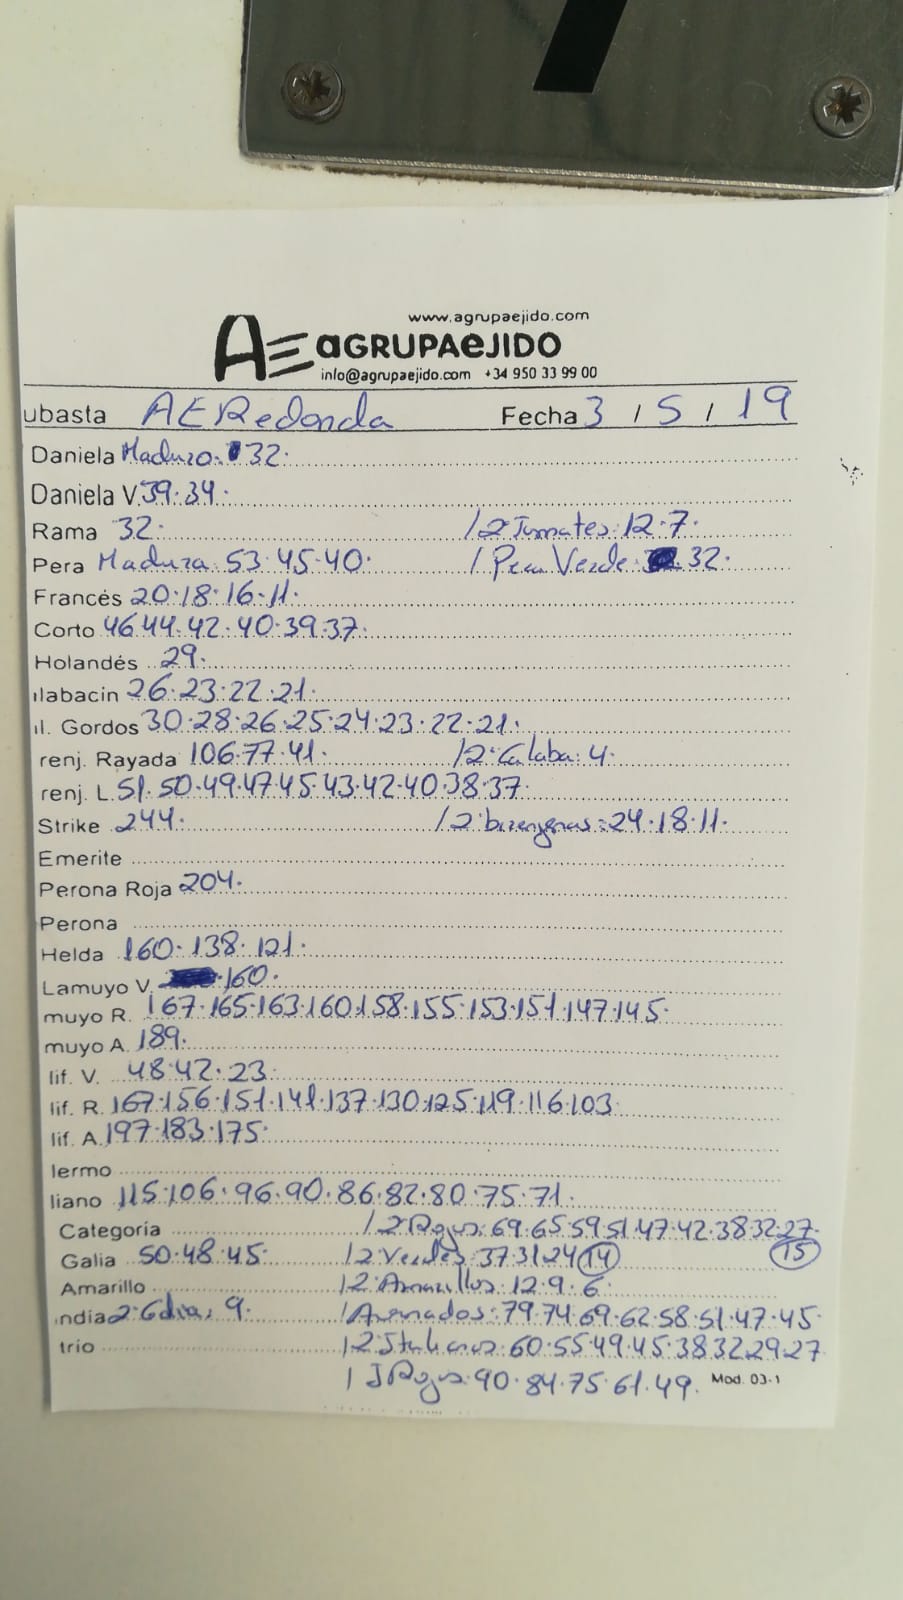 www.agrupaejido.com
AE aGRUPAeJIDO
info@agrupaejido.com +34 950 33 99 00
ubasta AE Redonda Fecha 3 / 5 / 19
Daniela Maduro. 32.
Daniela V. 39.34.
Rama 32. / 2ª Tomates: 12.7.
Pera Madura. 53.45.40. / Pera Verde: 32.
Francés 20.18.16.11.
Corto 46.44.42.40.39.37.
Holandés 29.
ılabacin 26.23.22.21.
ıl. Gordos 30.28.26.25.24.23.22.21.
renj. Rayada 106.77.41. / 2ª Calaba: 4.
renj. L. 51.50.49.47.45.43.42.40.38.37.
Strike 244. / 2ª berengenas: 24.18.11.
Emerite
Perona Roja 204.
Perona
Helda 160.138.121.
Lamuyo V. 160.
muyo R. 167.165.163.160.158.155.153.151.147.145.
muyo A. 189.
lif. V. 48.42.23.
lif. R. 167.156.151.141.137.130.125.119.116.103
lif. A. 197.183.175.
lermo
liano 115.106.96.90.86.82.80.75.71.
Categoría / 2ª Rojos: 69.65.59.51.47.42.38.32.27.
15
Galia 50.48.45. / 2ª Verdes: 37.31.24 14
Amarillo / 2ª Amarillos: 12.9.6.
ndia 9. / Asurados: 79.74.69.62.58.51.47.45
trio / 2ª Italianos: 60.55.49.45.38.32.29.27
/ I Rojos: 90.84.75.61.49. Mod. 03-1